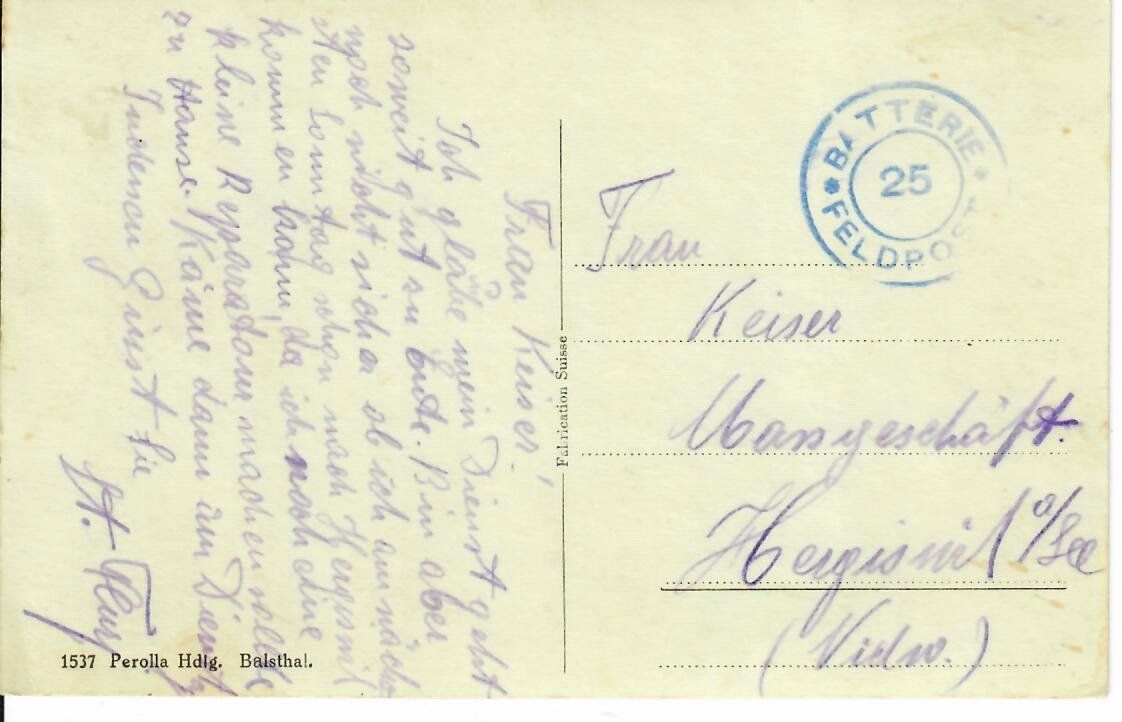 Frau Keiser,
Ich glaube mein Dienst geht
soweit gut zu Ende. Bin aber
noch nicht sicher ob ich am näch-
sten Sonntag schon nach Hergiswil
kommen kann, da ich noch eine
kleine Repparatour machen sollte
zu Hause. Käme dann am
Indemen Grüsst Sie
1537 Perolla Hdlg. Balsthal.
Fabrication Suisse
BATTERIE
25
FELDPOST
Frau
Keiser
Hergiswil a/See
(Nidw.)